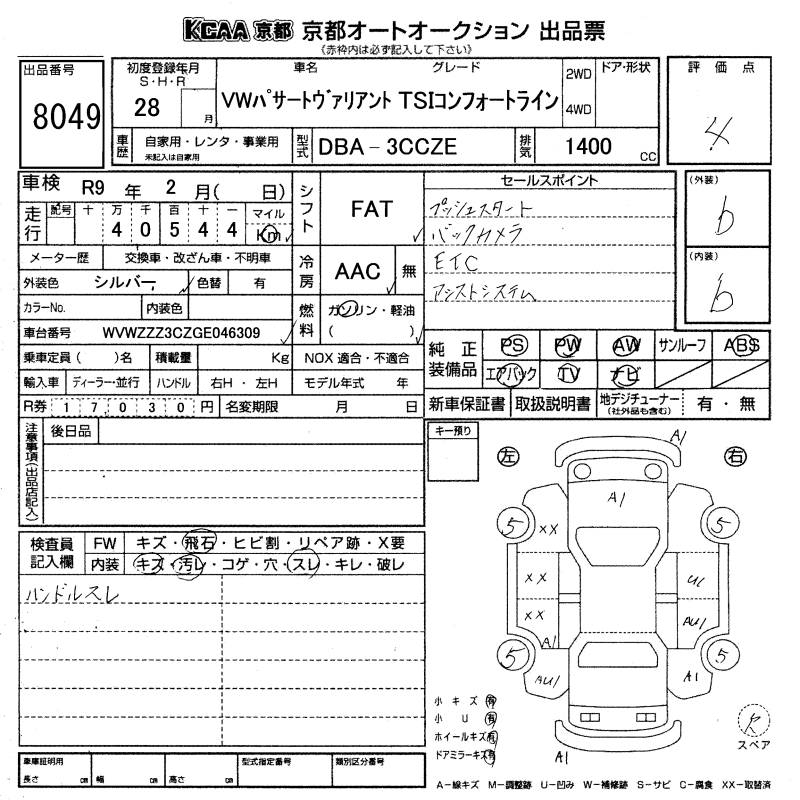 KCAA 京都 京都オートオークション 出品票
《赤枠内は必ず記入して下さい》
出品番号
8049
初度登録年月
S・H・R
28 月
車名 グレード
VWパサートヴァリアント TSIコンフォートライン
2WD
4WD
ドア・形状
評価点
4
車歴 自家用・レンタ・事業用
未記入は自家用
型式 DBA－3CCZE
排気 1400 cc
車検 R9 年 2 月( 日)
走行 記号 十 万 千 百 十 一 マイル
4 0 5 4 4 Km
メーター歴 交換車・改ざん車・不明車
外装色 シルバー 色替 有
カラーNo. 内装色
車台番号 WVWZZZ3CZGE046309
乗車定員( )名 積載量 Kg
輸入車 ディーラー・並行 ハンドル 右H・左H
R券 1 7 0 3 0 円 名変期限 月 日
シフト FAT
冷房 AAC 無
燃料 ガソリン・軽油
( )
NOX 適合・不適合
モデル年式 年
セールスポイント
プッシュスタート
バックカメラ
ETC
アシストシステム
(外装)
b
(内装)
b
純正装備品 PS PW AW サンルーフ ABS
エアバック TV ナビ
新車保証書 取扱説明書 地デジチューナー
(社外品も含む) 有・無
注意事項(出品店記入)
後日品
キー預り
検査員記入欄
FW キズ・飛石・ヒビ割・リペア跡・X要
内装 キズ・汚レ・コゲ・穴・スレ・キレ・破レ
ハンドルスレ
左 右
A1
A1
5 5
XX
XX U1
XX AU1
A1
5 5
AU1 A1
A1
小キズ 有
小U 有
ホイールキズ 有
ドアミラーキズ 有
スペア
車庫証明用
長さ cm 幅 cm 高さ cm
型式指定番号
類別区分番号
A－線キズ M－調整跡 U－凹み W－補修跡 S－サビ C－腐食 XX－取替済